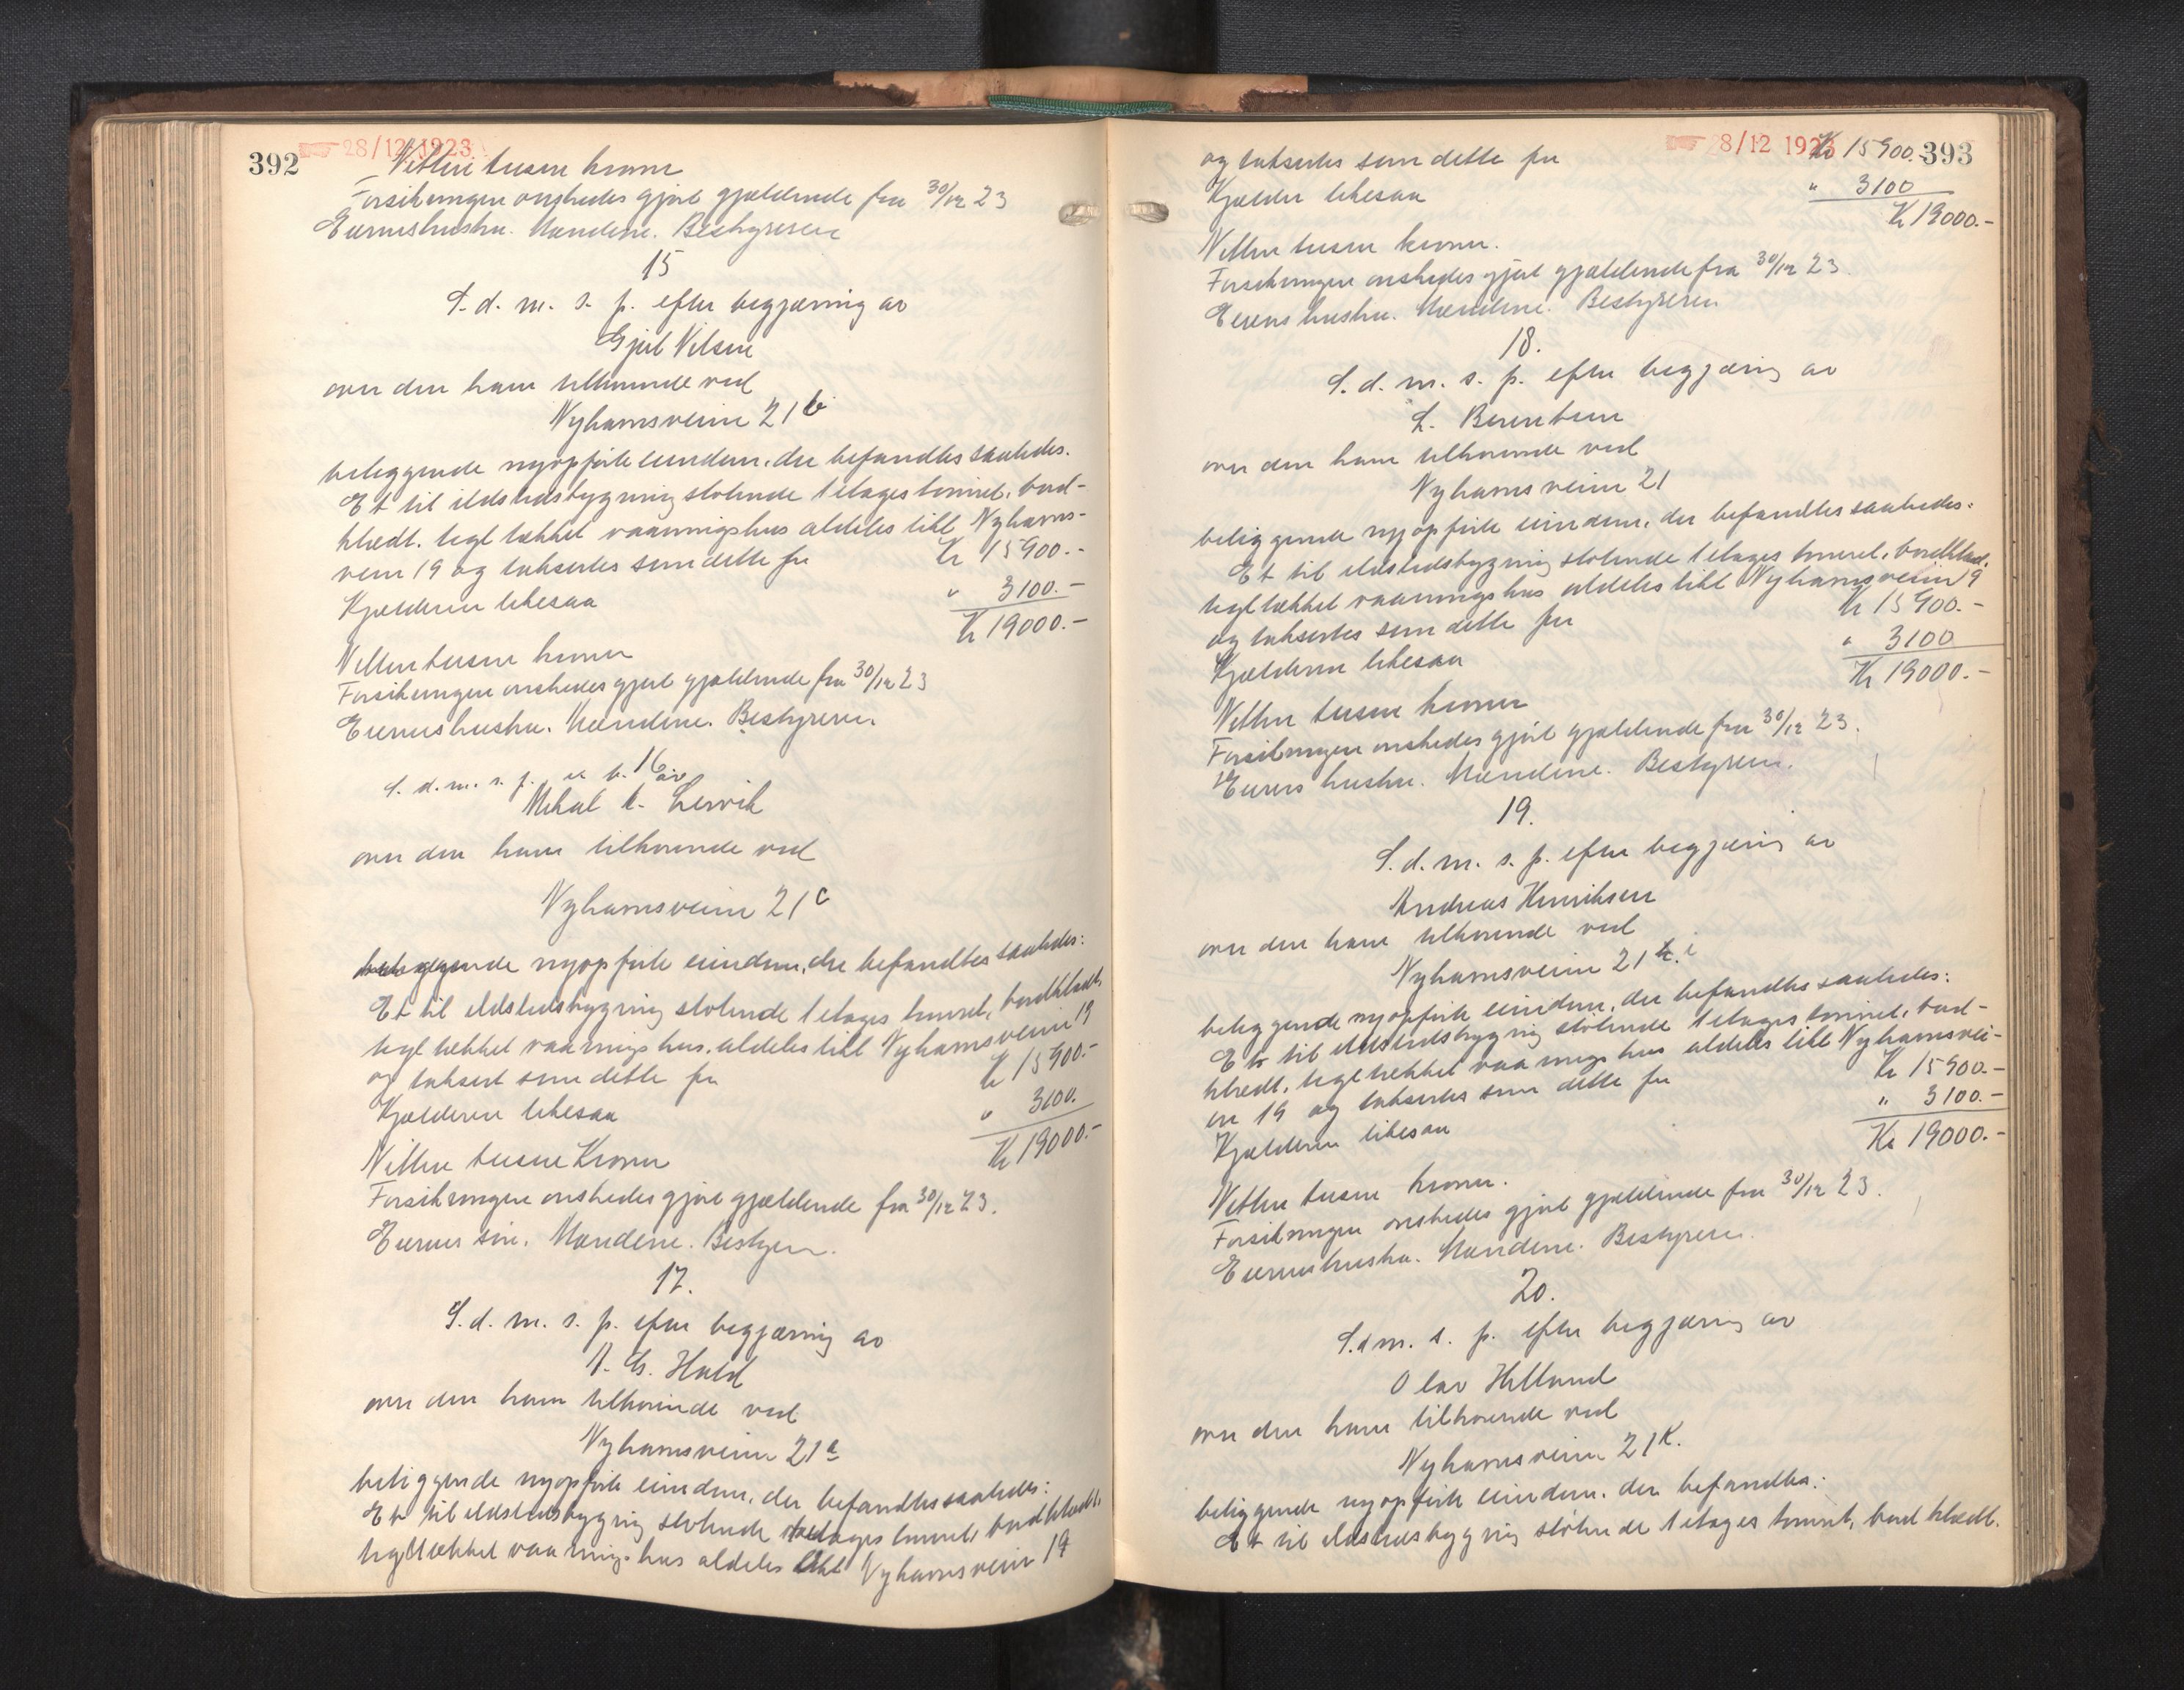 392
28/12 1923
Nitten tusen kroner
Forsikringen ønskedes gjort gjældende fra 30/12 23
Eierens hustru. Mændene. Bestyreren
15
S. d. m. s. p. efter begjæring av
Gjert Nilsen
over den ham tilhørende ved
Nyhavnsveien 21 b
beliggende nyopførte eiendom, der befandtes saaledes.
Et til ildstedsbygning støtende 1 etages tømret, bord-
klædt, tegltækket vaaningshus aldeles likt Nyhavns-
veien 19 og takseredes som dette for Kr 15900.-
Kjælderen likesaa " 3100.-
Kr 19000.-
Nitten tusen kroner
Forsikringen ønskedes gjort gjældende fra 30/12 23
Eierens hustru. Mændene. Bestyreren.
16
S. d. m. s. p. e. b. av
Mikal A. Lervik
over den ham tilhørende ved
Nyhavnsveien 21 c
beliggende nyopførte eiendom, der befandtes saaledes:
Et til ildstedsbygning støtende 1 etages tømret, bordklædt,
tegltækket vaaningshus, aldeles likt Nyhavnsveien 19
og taksert som dette for Kr 15900.-
Kjælderen likesaa " 3100.
Kr 19000.-
Nitten tusen Kroner
Forsikringen ønskedes gjort gjældende fra 30/12 23.
Eierens søn. Mændene. Bestyren.
17.
S. d. m. s. p. efter begjæring av
A. G. Hald
over den ham tilhørende ved
Nyhavnsveien 21 a
beliggende nyopførte eiendom, der befandtes saaledes:
Et til ildstedsbygning støtende 1 etages tømret, bordklædt,
tegltækket vaanings hus aldeles likt Nyhavnsveien 19
28/12 1923
393
og takseredes som dette for Kr 15900.-
Kjælder likesaa " 3100
Kr 19000.-
Nitten tusen kroner.
Forsikringen ønskedes gjort gjældende fra 30/12 23.
Eierens hustru. Mændene. Bestyreren
18.
S. d. m. s. p. efter begjæring av
L. Berentsen
over den ham tilhørende ved
Nyhavnsveien 21
beliggende nyopførte eiendom, der befandtes saaledes:
Et til ildstedsbygning støtende 1 etages tømret, bordklæd.
tegltækket vaaningshus aldeles likt Nyhavnsveien 19
og takseredes som dette for Kr 15900.-
Kjælderen likesaa " 3100
Kr 19000.-
Nitten tusen kroner
Forsikringen ønskedes gjort gjældende fra 30/12 23.
Eierens hustru. Mændene. Bestyreren.
19.
S. d. m. s. p. efter begjæring av
Andreas Henriksen
over den ham tilhørende ved
Nyhavnsveien 21 i
beliggende nyopførte eiendom, der befandtes saaledes:
Et til ildstedsbygning støtende 1 etages tømret, bord-
klædt, tegltækket vaaningshus aldeles likt Nyhavnsvei-
en 19 og takseredes som dette for Kr 15900.-
Kjælderen likesaa " 3100.-
Kr 19000.-
Nitten tusen kroner.
Forsikringen ønskedes gjort gjældende fra 30/12 23.
Eierens hustru. Mændene. Bestyreren.
20.
S. d m. s. p. efter begjæring av
Olav Helland
over den ham tilhørende ved
Nyhavnsveien 21 K.
beliggende nyopførte eiendom, der befandtes:
Et til ildstedsbygning støtende 1 etages tømret, bord klædt.